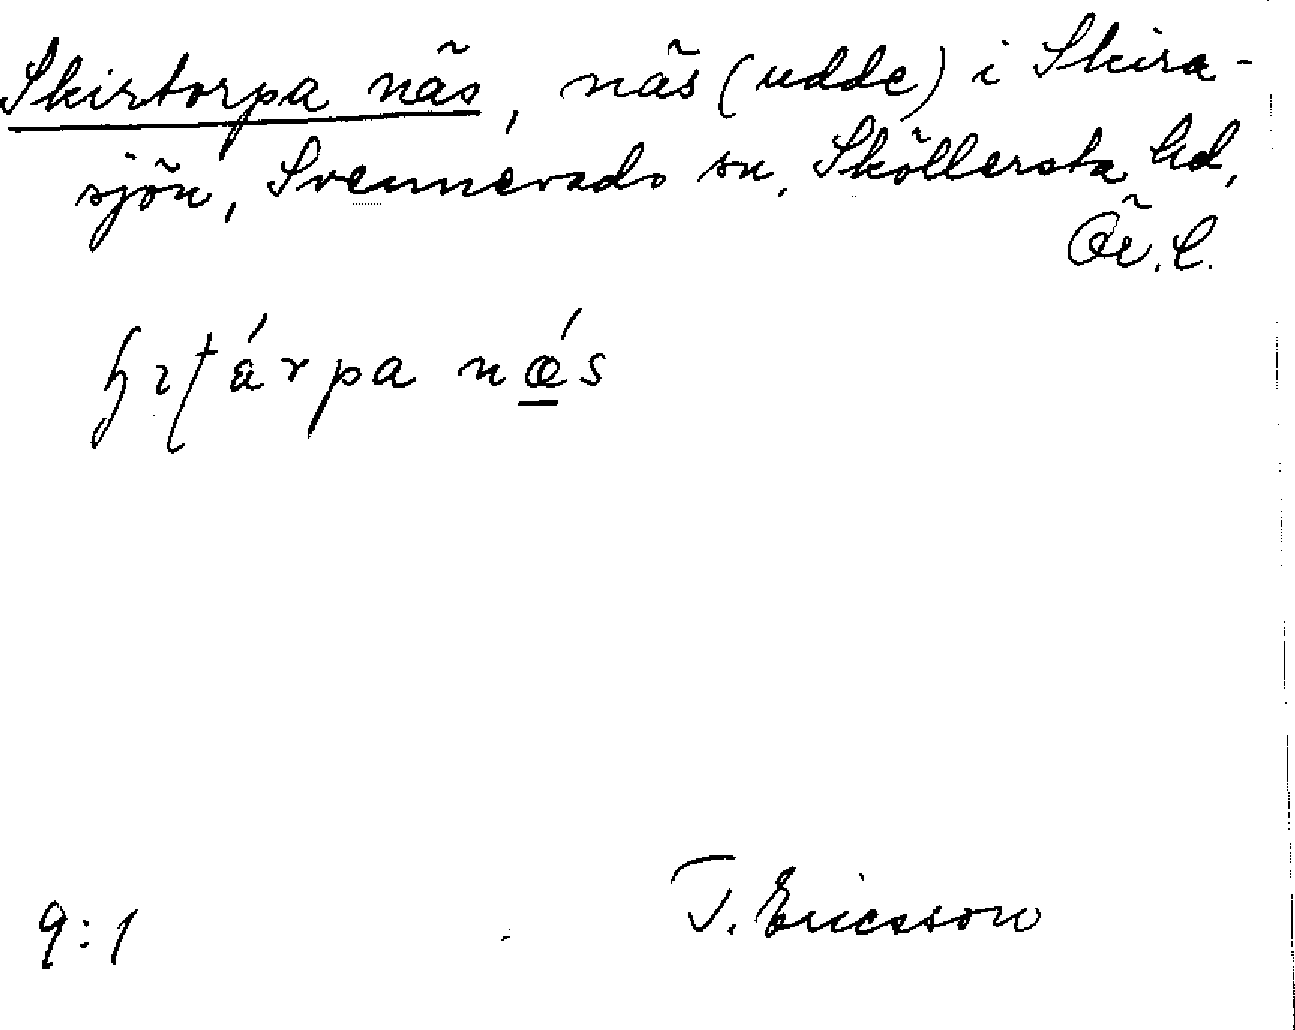 Skirtorpa näs, näs (udde) i Skira-
sjön, Svennevads sn, Sköllersta hd,
Ör. l.
9:1
T. Ericsson